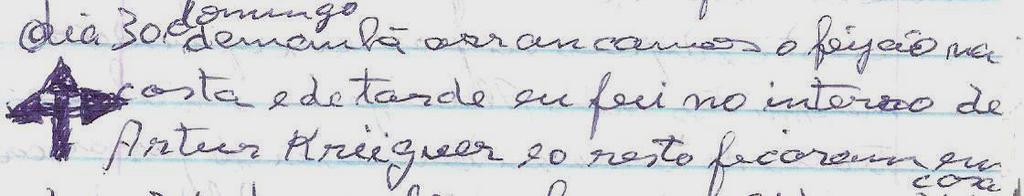 dia 30. domingo
demanhã arrancamos o feijão na
costa e de tarde eu fui no interro de
Artur Krüiguer eo resto ficaram em
casa